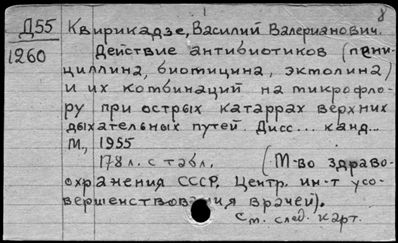 8
Д55 Квирикадзе, Василий Валерианович.
1260 Действие антибиотиков (пени-
циллина, биомицина, эктолина)
и их комбинаций на микрофло-
ру при острых катаррах верхних
дыхательных путей. Дисс... канд...
М., 1955
178 л. с табл. (М-во здраво-
охранения СССР. Центр. ин-т усо-
вершенствования врачей).
См. след. карт.